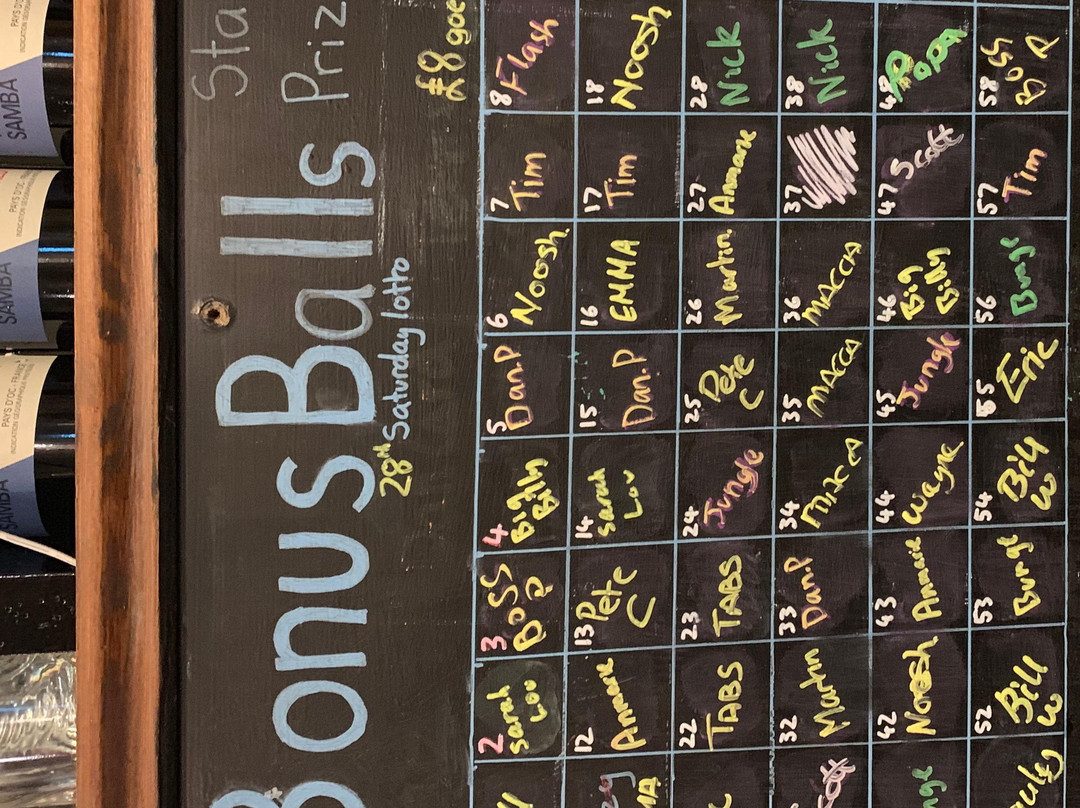 Sta
Bonus Balls Priz
28th Saturday lotto
£8 goe
2 Sarah Lou
3 BOSS
4 Big Billy
5 Dan.P
6 Noosh
7 Tim
8 Flash
12 Annmarie
13 Pete C
14 Sarah Lou
15 Dan.P
16 EMMA
17 Tim
18 Noosh
22 TABS
23 TABS
24 Jungle
25 Pete C
26 Martin.
27 Annmarie
28 Nick
32 Martin
33 Dan P
34
35 MACCA
36 MACCA
37
38 Nick
42 Noosh
43 Annmarie
44 Wayne
45 Jungle
46 Big Billy
47 Scott
48
52 Bill W
53 Bunge
54 Bill W
55 Eric
56 Bunge
57 Tim
58 BOSS
PAYS D'OC
INDICATION GEOGRAPHIQUE
SAMBA
PAYS D'OC
SAMBA
PAYS D'OC - FRANCE
SAMBA